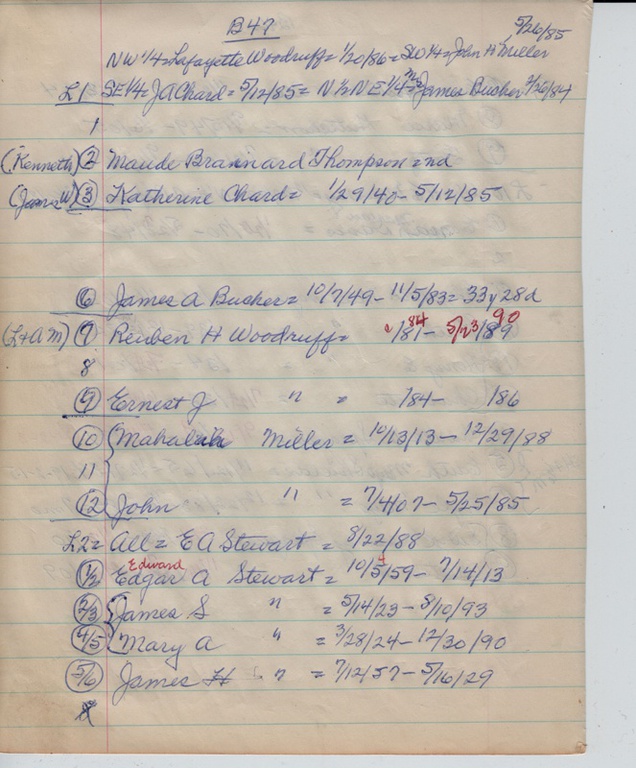 B47
5/26/85
NW 1/4 = Lafayette Woodruff = 1/20/86 = SW 1/4 = John H Miller
L1 SE 1/4 = J A Chard = 5/12/85 = N 1/2 N E 1/4 = James Bucher 3/26/84
1
(Kenneth) 2 Maude Brannard Thompson = nd
(James W) 3 Katherine Chard = 1/29/40 - 5/12/85
6 James A Bucher = 10/7/49 - 11/5/83 = 33y 28d
(L + A M) 7 Reuben H Woodruff = /81 84 - 5/23/89 90
8
9 Ernest J " = /84 - /86
10 Mahalah Miller = 10/13/13 - 12/29/88
11
12 John " = 7/4/07 - 5/25/85
L2 = All = E A Stewart = 8/22/88
Edward 4
1/2 Edgar A Stewart = 10/5/59 - 7/14/13
2/3 James S " = 5/14/23 - 8/10/93
4/5 Mary A " = 3/28/24 - 12/30/90
5/6 James H " = 7/12/57 - 5/16/29